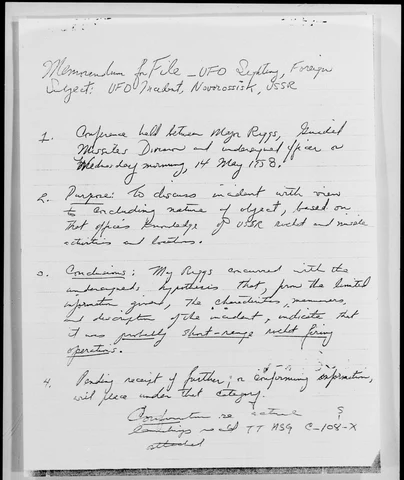 Memorandum for File – UFO Sighting, Foreign
Subject: UFO Incident, Novorossisk, USSR
1. Conference held between Major Riggs, Guided
Missiles Division and undersigned officer on
Wednesday morning, 14 May 1958.
2. Purpose: To discuss incident with view
to concluding nature of object, based on
that offices knowledge of USSR rocket and missile
activities and locations.
3. Conclusions: Maj Riggs concurred with the
undersigned's hypothesis that, from the limited
information given, the characteristics, maneuvers,
and description of the incident, indicate that
it was probably short-range rocket firing
operations.
4. Pending receipt of further, or confirming information,
will place under that category.
TT MSG C-108-X
attached